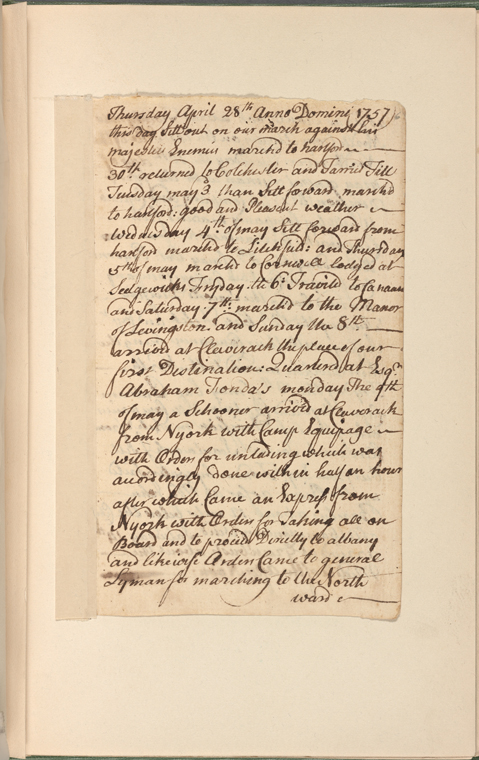 Thursday April 28th Anno Domini 1757
this day Sett out on our march against his
majesties Enemies march'd to harford
30th returned to Colchester and Tarried Till
Tuesday may 3 than Sett forward march'd
to harford: good and Pleasent weather
Wednesday 4th of may Sett forward from
harford march'd to Litchfield: and Thursday
5th of may march'd to Cornwell lodged at
Sedgewicks Fryday the 6: Travild to Canaan
and Saturday 7th march'd to the Manor
of Levingston. and Sunday the 8th
arrived at Claverack the place of our
first Distination: Quarterd at Esqr
Abraham Fonda's monday The 9th
of may a Schooner arrived at Claverack
from NYork with Camp Equipage
with Orders for unlading which was
accordingly done within half an hour
after which Came an Express from
NYork with Orders for Taking all on
Board and to proceed Directly to albany
and likewise Orders Came to general
Lyman for marching to the North
ward